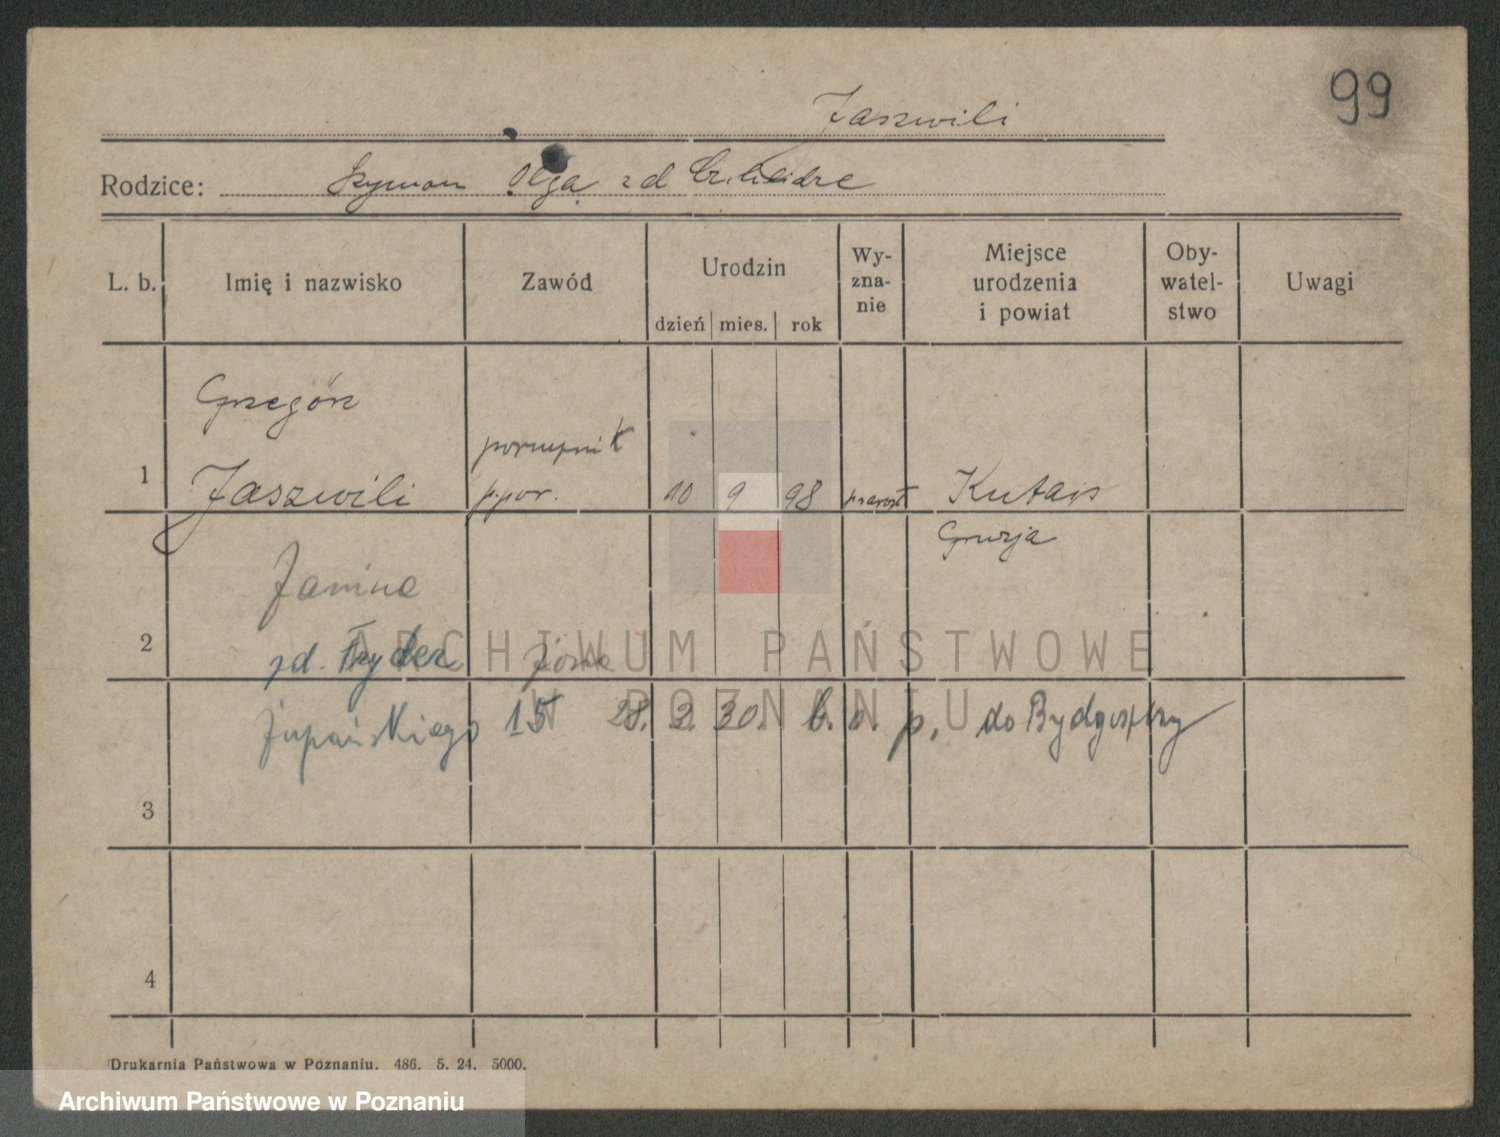 99
Jaszwili
Rodzice: Szymon Olga zd
L. b. Imię i nazwisko Zawód Urodzin Wy-zna-nie Miejsce urodzenia i powiat Oby-watel-stwo Uwagi
dzień mies. rok
Grzegórz
porucznik
1 Jaszwili p.por. 10 9 98 prawosł Kutais
Gruzja
Janina
2 zd. żona
Żupańskiego 15 28. 2. 30. b. o. p. do Bydgoszczy
3
4
Drukarnia Państwowa w Poznaniu. 486. 5. 24. 5000.
ARCHIWUM PAŃSTWOWE
W POZNANIU
Archiwum Państwowe w Poznaniu